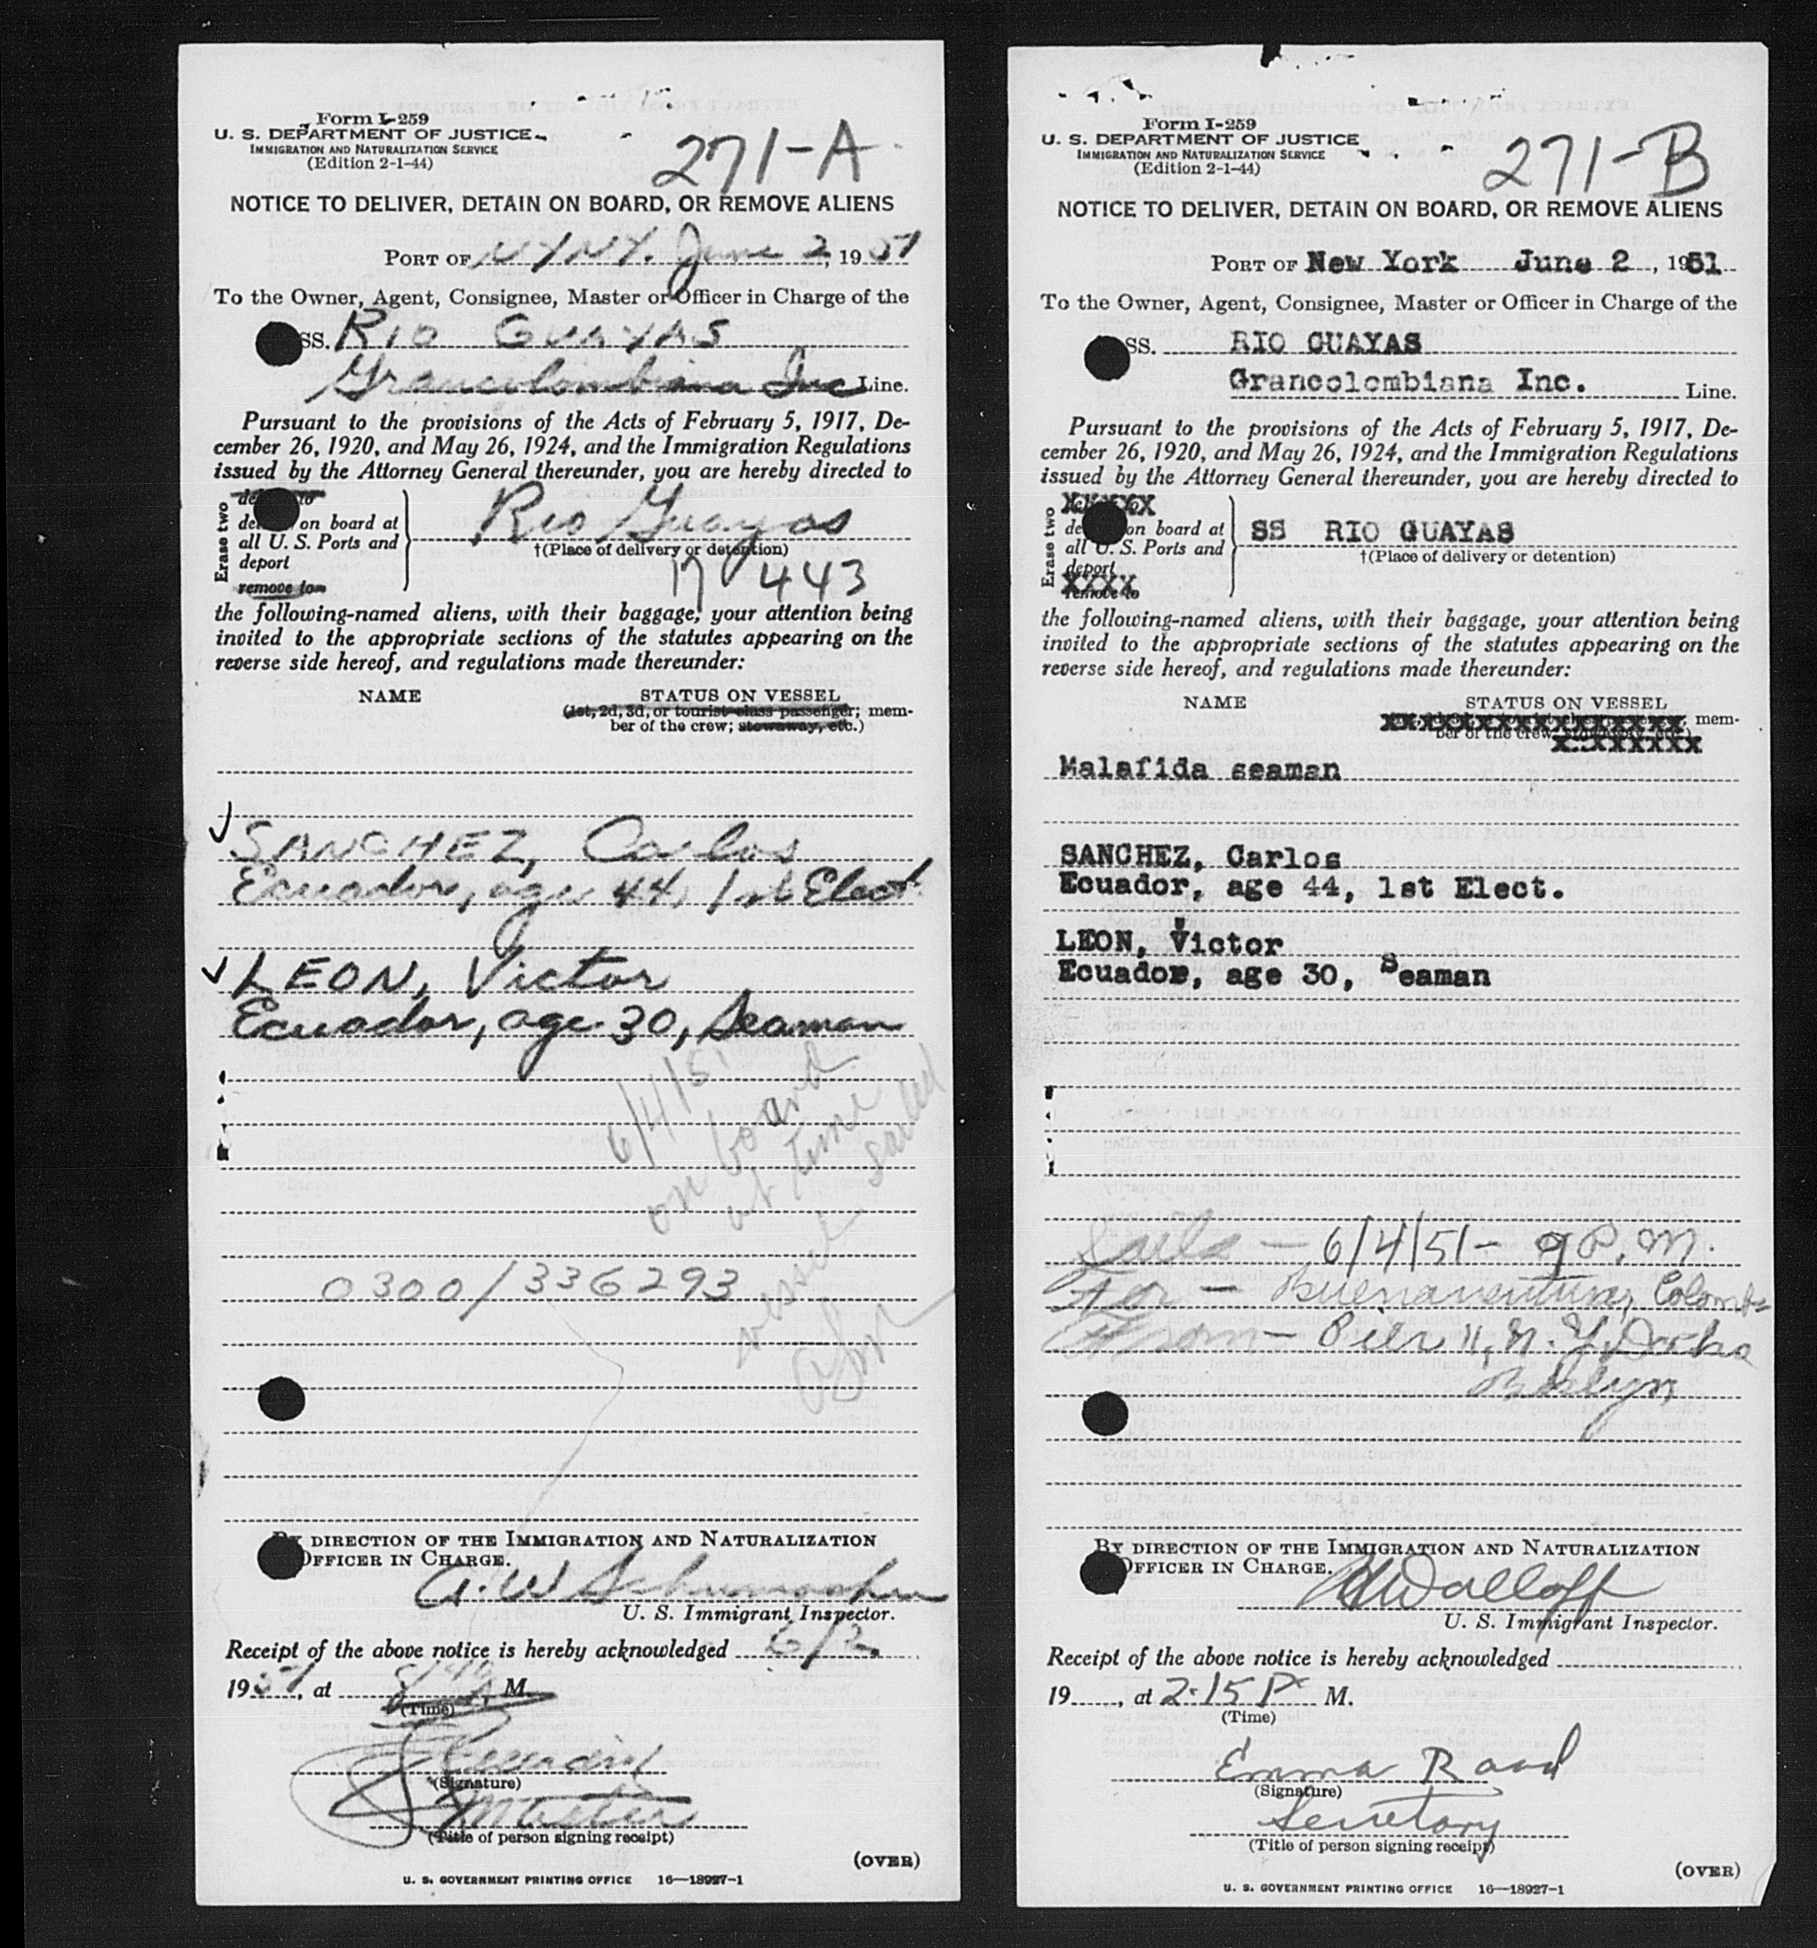 Form I-259
U. S. DEPARTMENT OF JUSTICE
IMMIGRATION AND NATURALIZATION SERVICE
(Edition 2-1-44)
271-A
NOTICE TO DELIVER, DETAIN ON BOARD, OR REMOVE ALIENS
PORT OF NYNY. June 2, 1951
To the Owner, Agent, Consignee, Master or Officer in Charge of the
SS. RIO GUAYAS
Grancolombiana Inc Line.
Pursuant to the provisions of the Acts of February 5, 1917, De-
cember 26, 1920, and May 26, 1924, and the Immigration Regulations
issued by the Attorney General thereunder, you are hereby directed to
Erase two
to
on board at
all U. S. Ports and
deport
remove to
Rio Guayas
†(Place of delivery or detention)
17 443
the following-named aliens, with their baggage, your attention being
invited to the appropriate sections of the statutes appearing on the
reverse side hereof, and regulations made thereunder:
NAME STATUS ON VESSEL
(1st, 2d, 3d, or tourist-class passenger; mem-
ber of the crew; stowaway, etc.)
SANCHEZ, Carlos
Ecuador, age 44, 1st Elect.
LEON, Victor
Ecuador, age 30, Seaman
6/4/51
on board
at time
vessel sailed
0300/336293
BY DIRECTION OF THE IMMIGRATION AND NATURALIZATION
OFFICER IN CHARGE.
A. W. Schumacher
U. S. Immigrant Inspector.
Receipt of the above notice is hereby acknowledged 6/2,
1951, at M.
(Time)
(Signature)
Master
(Title of person signing receipt)
(OVER)
U. S. GOVERNMENT PRINTING OFFICE 16—18927-1
Form I-259
U. S. DEPARTMENT OF JUSTICE
IMMIGRATION AND NATURALIZATION SERVICE
(Edition 2-1-44)
271-B
NOTICE TO DELIVER, DETAIN ON BOARD, OR REMOVE ALIENS
PORT OF New York June 2, 1951
To the Owner, Agent, Consignee, Master or Officer in Charge of the
SS. RIO GUAYAS
Grancolombiana Inc. Line.
Pursuant to the provisions of the Acts of February 5, 1917, De-
cember 26, 1920, and May 26, 1924, and the Immigration Regulations
issued by the Attorney General thereunder, you are hereby directed to
Erase two
XXXXXX
on board at
all U. S. Ports and
deport
XXXX
remove to
SS RIO GUAYAS
†(Place of delivery or detention)
the following-named aliens, with their baggage, your attention being
invited to the appropriate sections of the statutes appearing on the
reverse side hereof, and regulations made thereunder:
NAME STATUS ON VESSEL
mem-
ber of the crew
Malafida seaman
SANCHEZ, Carlos
Ecuador, age 44, 1st Elect.
LEON, Victor
Ecuador, age 30, Seaman
Sails — 6/4/51 - 9 P.M.
For — Buenaventura, Colombia
From — Pier 11, N. Y. Docks
Bklyn
BY DIRECTION OF THE IMMIGRATION AND NATURALIZATION
OFFICER IN CHARGE.
U. S. Immigrant Inspector.
Receipt of the above notice is hereby acknowledged
19, at 2.15 P M.
(Time)
Emma Raad
(Signature)
Secretary
(Title of person signing receipt)
(OVER)
U. S. GOVERNMENT PRINTING OFFICE 16—18927-1